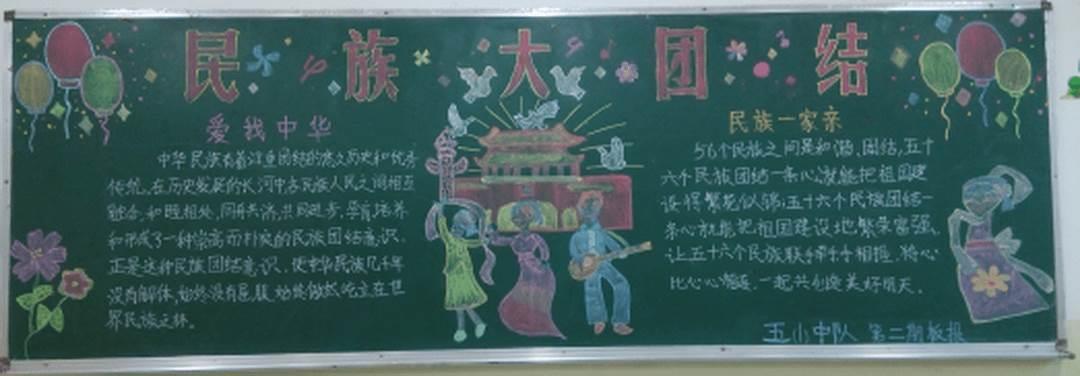 民族大团结
爱我中华
中华民族有着注重团结的悠久历史和优秀
传统,在历史发展的长河中各民族人民之间相互
融合,和睦相处,同舟共济,共同进步,孕育培养
和形成了一种崇高而朴实的民族团结意识。
正是这种民族团结意识,使中华民族几千年
没有解体,始终没有屈服,始终傲然屹立在世
界民族之林。
民族一家亲
56个民族之间是和谐、团结,五十
六个民族团结一条心就能把祖国建
设得繁花似锦,五十六个民族团结一
条心就能把祖国建设地繁荣富强。
让五十六个民族联手牵手相握,将心
比心心相连,一起共创美好明天。
五小中队 第二期板报